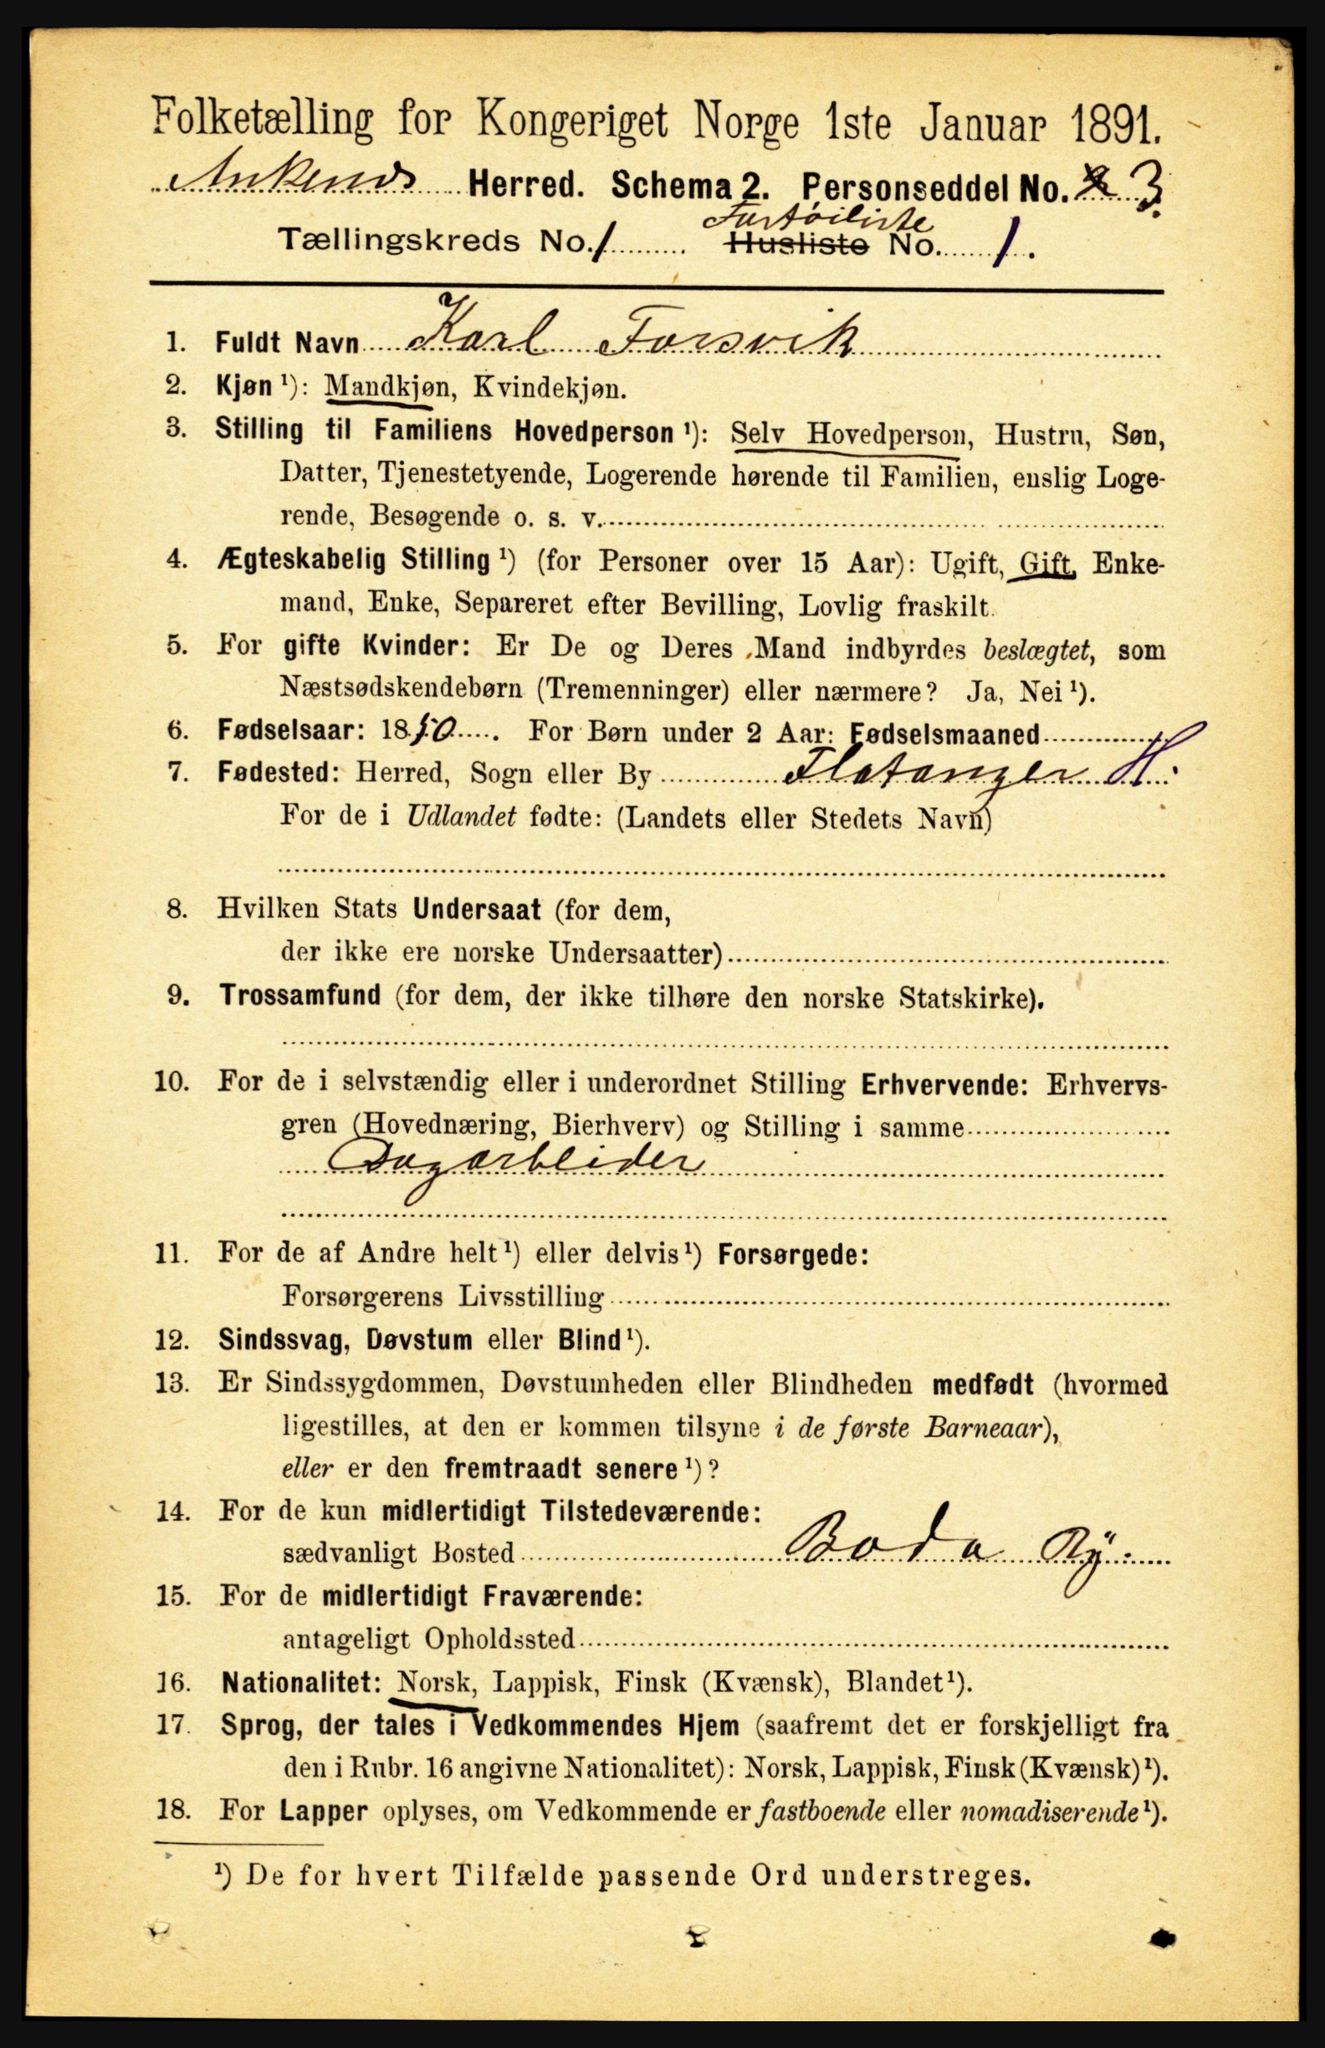 Folketælling for Kongeriget Norge 1ste Januar 1891.
Ankenes Herred. Schema 2. Personseddel No. 3.
Fartöiliste
Tællingskreds No. 1 Husliste No. 1.
1. Fuldt Navn Karl Forsvik
2. Kjøn ¹): Mandkjøn, Kvindekjøn.
3. Stilling til Familiens Hovedperson ¹): Selv Hovedperson, Hustru, Søn,
Datter, Tjenestetyende, Logerende hørende til Familien, enslig Loge-
rende, Besøgende o. s. v.
4. Ægteskabelig Stilling ¹) (for Personer over 15 Aar): Ugift, Gift, Enke-
mand, Enke, Separeret efter Bevilling, Lovlig fraskilt.
5. For gifte Kvinder: Er De og Deres Mand indbyrdes beslægtet, som
Næstsødskendebørn (Tremenninger) eller nærmere? Ja, Nei ¹).
6. Fødselsaar: 1850. For Børn under 2 Aar: Fødselsmaaned
7. Fødested: Herred, Sogn eller By Flatanger H.
For de i Udlandet fødte: (Landets eller Stedets Navn)
8. Hvilken Stats Undersaat (for dem,
der ikke ere norske Undersaatter)
9. Trossamfund (for dem, der ikke tilhøre den norske Statskirke).
10. For de i selvstændig eller i underordnet Stilling Erhvervende: Erhvervs-
gren (Hovednæring, Bierhverv) og Stilling i samme
Dagarbeider
11. For de af Andre helt ¹) eller delvis ¹) Forsørgede:
Forsørgerens Livsstilling
12. Sindssvag, Døvstum eller Blind ¹).
13. Er Sindssygdommen, Døvstumheden eller Blindheden medfødt (hvormed
ligestilles, at den er kommen tilsyne i de første Barneaar),
eller er den fremtraadt senere ¹)?
14. For de kun midlertidigt Tilstedeværende:
sædvanligt Bosted Bodø By
15. For de midlertidigt Fraværende:
antageligt Opholdssted
16. Nationalitet: Norsk, Lappisk, Finsk (Kvænsk), Blandet ¹).
17. Sprog, der tales i Vedkommendes Hjem (saafremt det er forskjelligt fra
den i Rubr. 16 angivne Nationalitet): Norsk, Lappisk, Finsk (Kvænsk) ¹).
18. For Lapper oplyses, om Vedkommende er fastboende eller nomadiserende ¹).
¹) De for hvert Tilfælde passende Ord understreges.